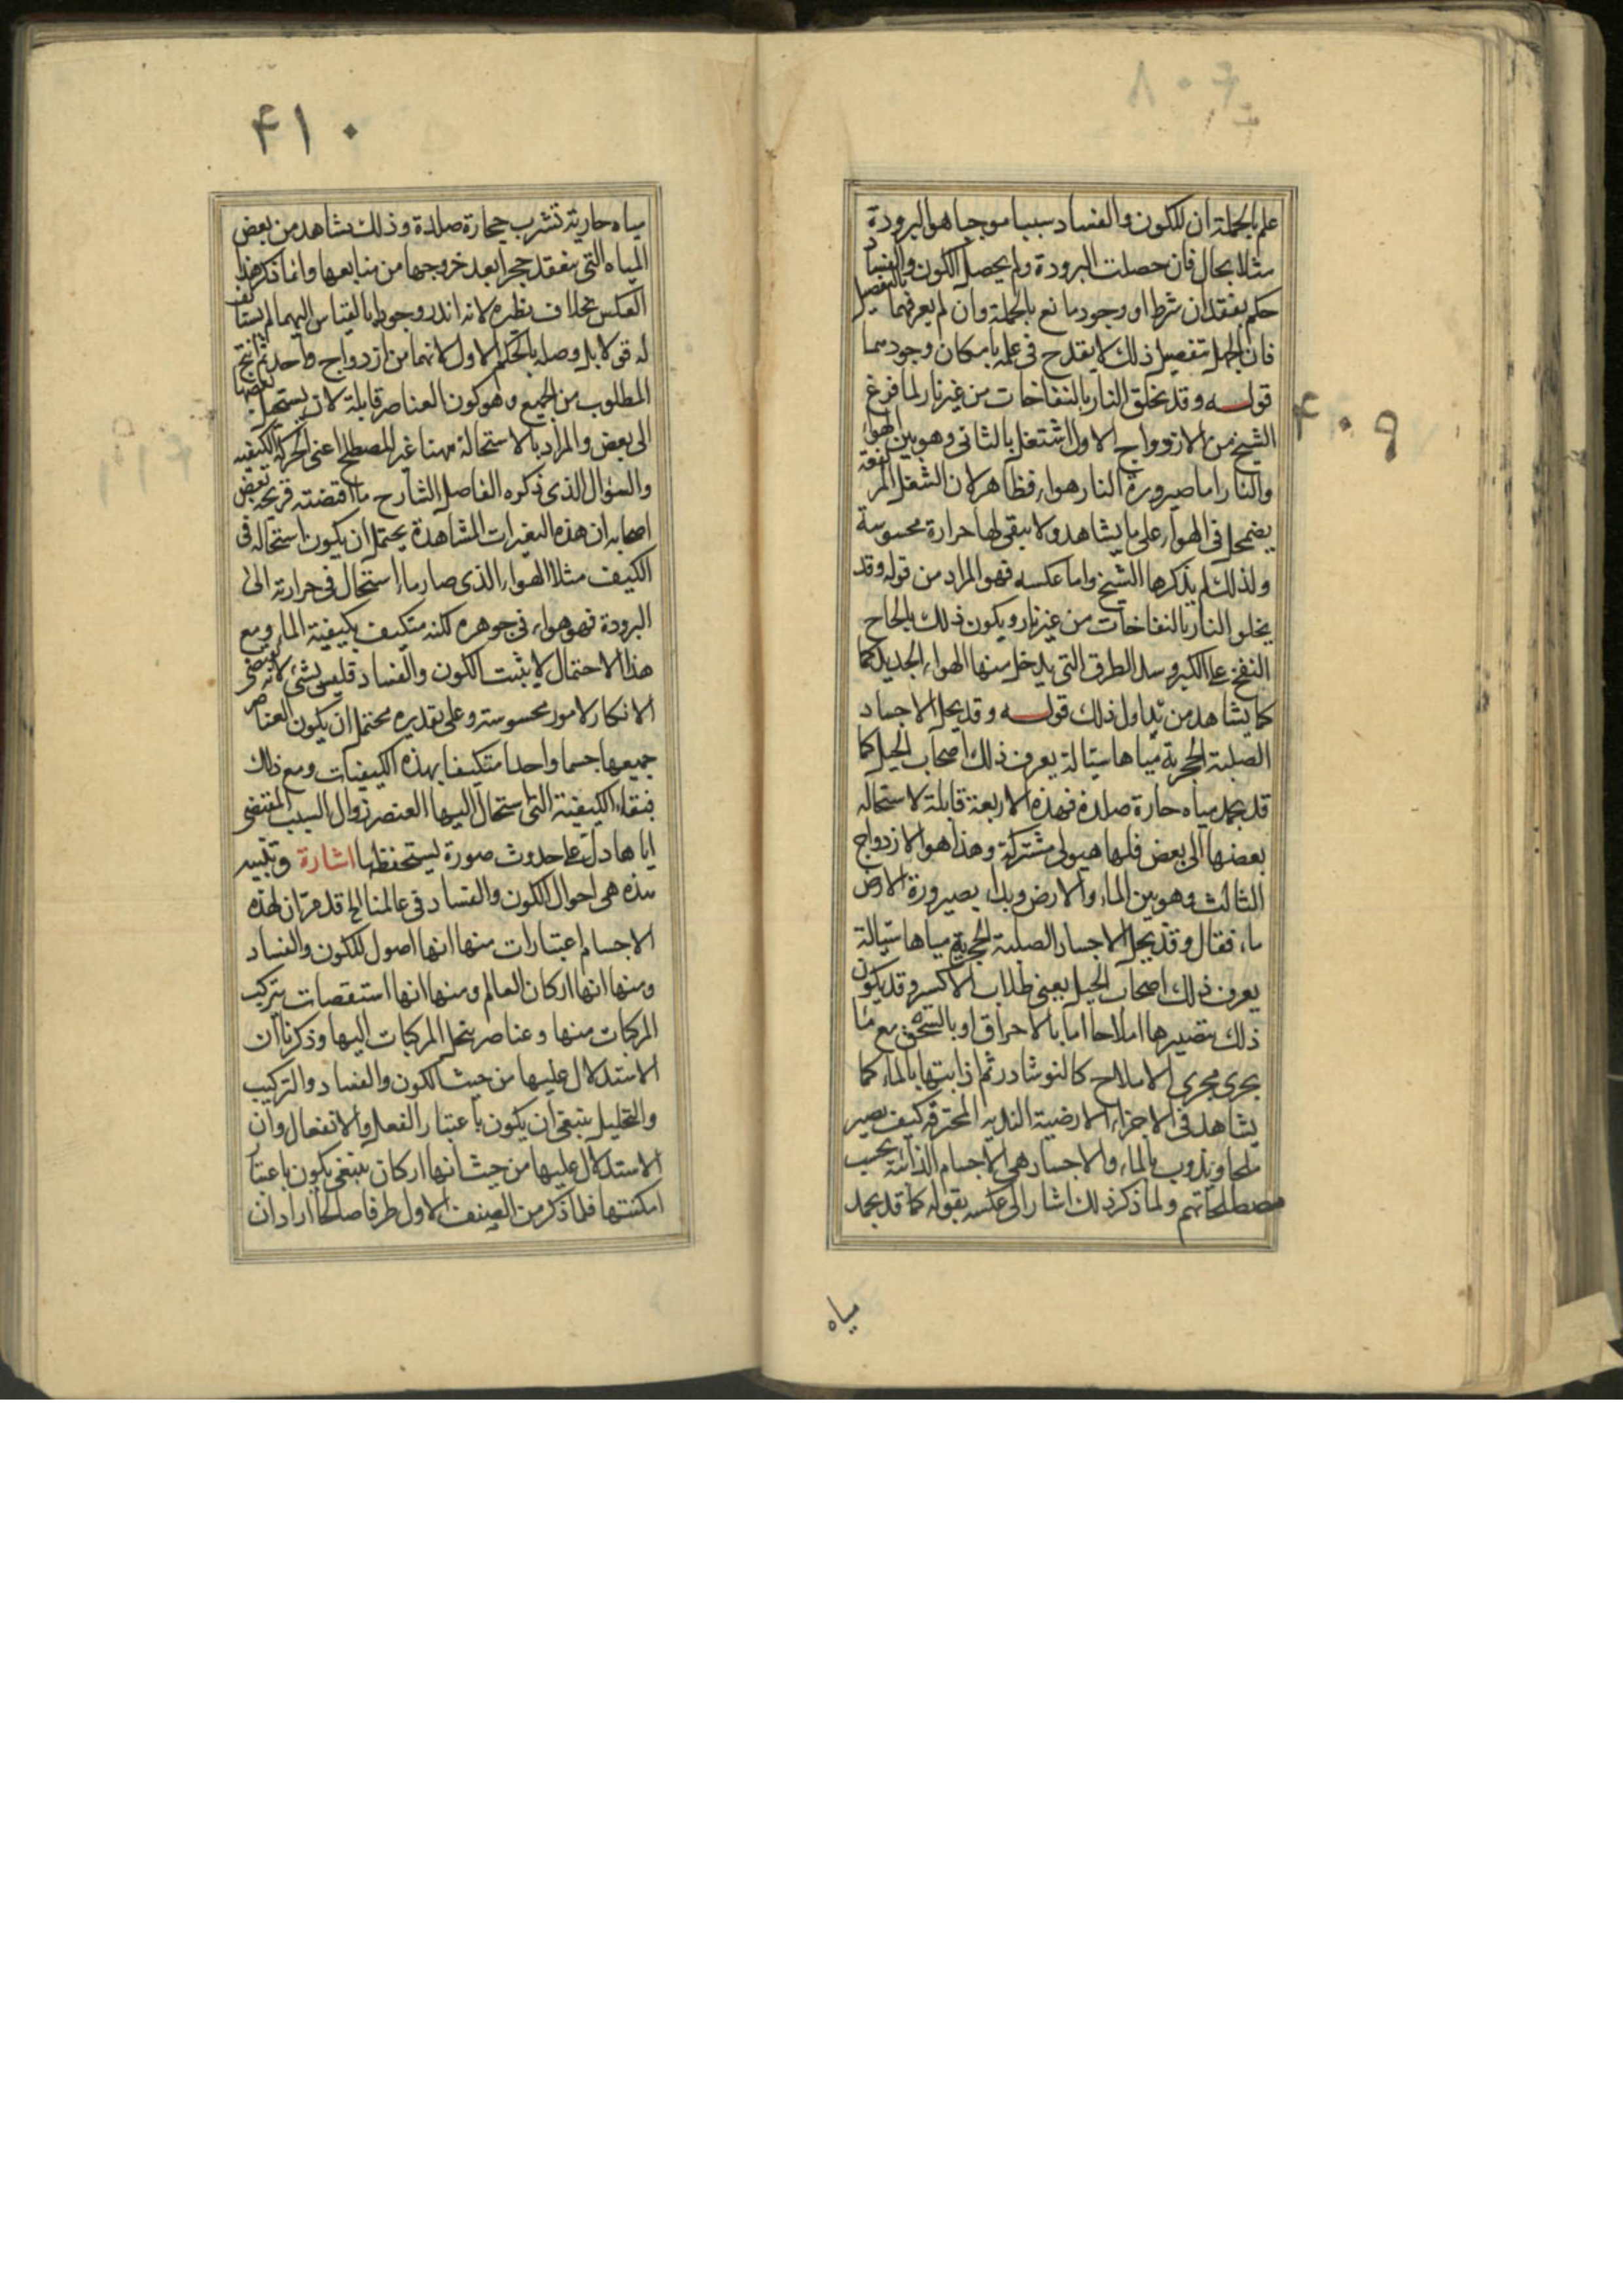 ٤٠٩
علم بالجملة ان للكون والفساد سببا موجبا هو البرودة
مثلا بحال فان حصلت البرودة ولم يحصل الكون والفساد
حكم بفقدان شرط او وجود مانع بالجملة وان لم يعرفهما بالتفصيل
فان الجهل بتفصيل ذلك لا يقدح فى علمه بامكان وجودهما
قوله وقد يخلق النار بالنفاخات من غير نار لما فرغ
الشيخ من الازدواج الاول اشتغل بالثانى وهو بين الهواء
والنار اما صيرورة النار هواء فظاهر لان الشعل المرتفعة
يضمحل فى الهواء على ما يشاهد ولا يبقى لها حرارة محسوسة
ولذلك لم يذكرها الشيخ واما عكسه فهو المراد من قوله وقد
يخلق النار بالنفاخات من غير نار ويكون ذلك بالحاح
النفخ على الكير وسد الطرق التى يدخل منها الهواء الجديد كما
كما يشاهد من يداول ذلك قوله وقد يحل الاجساد
الصلبة الحجرية مياها سيالة يعرف ذلك اصحاب الحيل كما
قد يجمد مياه حارة صلدة فهذه الاربعة قابلة لاستحالة
بعضها الى بعض فلها هيولى مشتركة وهذا هو الازدواج
الثالث وهو بين الماء والارض وبدا بصيرورة الارض
ماء فقال وقد يحل الاجساد الصلبة الحجرية مياها سيالة
يعرف ذلك اصحاب الحيل يعنى طلاب الاكسير وقد يكون
ذلك بتصييرها املاحا اما بالاحراق او بالسحق مع ما
يجرى مجرى الاملاح كالنوشادر ثم اذابتها بالماء كما
يشاهد فى الاجزاء الارضية الندية المحترقه كيف يصير
ملحا ويذوب بالماء والاجساد هى الاجسام الذائبة بحسب
مصطلحاتهم ولما ذكر ذلك اشار الى عكسه بقوله كما قد يجمد
مياه
٤١٠
مياه جارية تشرب حجارة صلدة وذلك يشاهد من بعض
المياه التى ينعقد حجرا بعد خروجها من منابعها وانما ذكر هذا
العكس بخلاف نظيره لانه اندر وجودا بالقياس اليهما لم يستانف
له قولا بل وصله بالحكم الاول لانهما من ازدواج واحد ثم انتج
المطلوب من الجميع وهو كون العناصر قابلة لان يستحيل بعضها
الى بعض والمراد بالاستحالة ههنا غير المصطلح اعنى الحركة الكيفيه
والسؤال الذى ذكره الفاضل الشارح مما اقتضته قريحة بعض
اصحابه ان هذه التغيرات المشاهدة يحتمل ان يكون استحالة فى
الكيف مثلا الهواء الذى صار ماء استحال فى حرارته الى
البرودة فهو هواء فى جوهره لكنه متكيف بكيفية الماء ومع
هذا الاحتمال لا يثبت الكون والفساد فليس بشئ لانه يقتضى
الانكار لامور محسوسة وعلى تقديره محتمل ان يكون العناصر
جميعها جسما واحدا متكيفا بهذه الكيفيات ومع ذلك
فبقاء الكيفية التى استحال اليها العنصر زوال السبب المقتضى
اياها دل على حدوث صورة يستحفظها اشارة وتنبيه
هذه هى احوال الكون والفساد فى عالمنا الخ قد مر ان لهذه
الاجسام اعتبارات منها انها اصول للكون والفساد
ومنها انها اركان العالم ومنها انها استقصات يتركب
المركبات منها وعناصر ينحل المركبات اليها وذكرنا ان
الاستدلال عليها من حيث الكون والفساد والتركيب
والتحليل ينبغى ان يكون باعتبار الفعل والانفعال وان
الاستدلال عليها من حيث انها اركان ينبغى يكون باعتبار
امكنتها فلما ذكر من الصنف الاول طرفا صالحا اراد ان